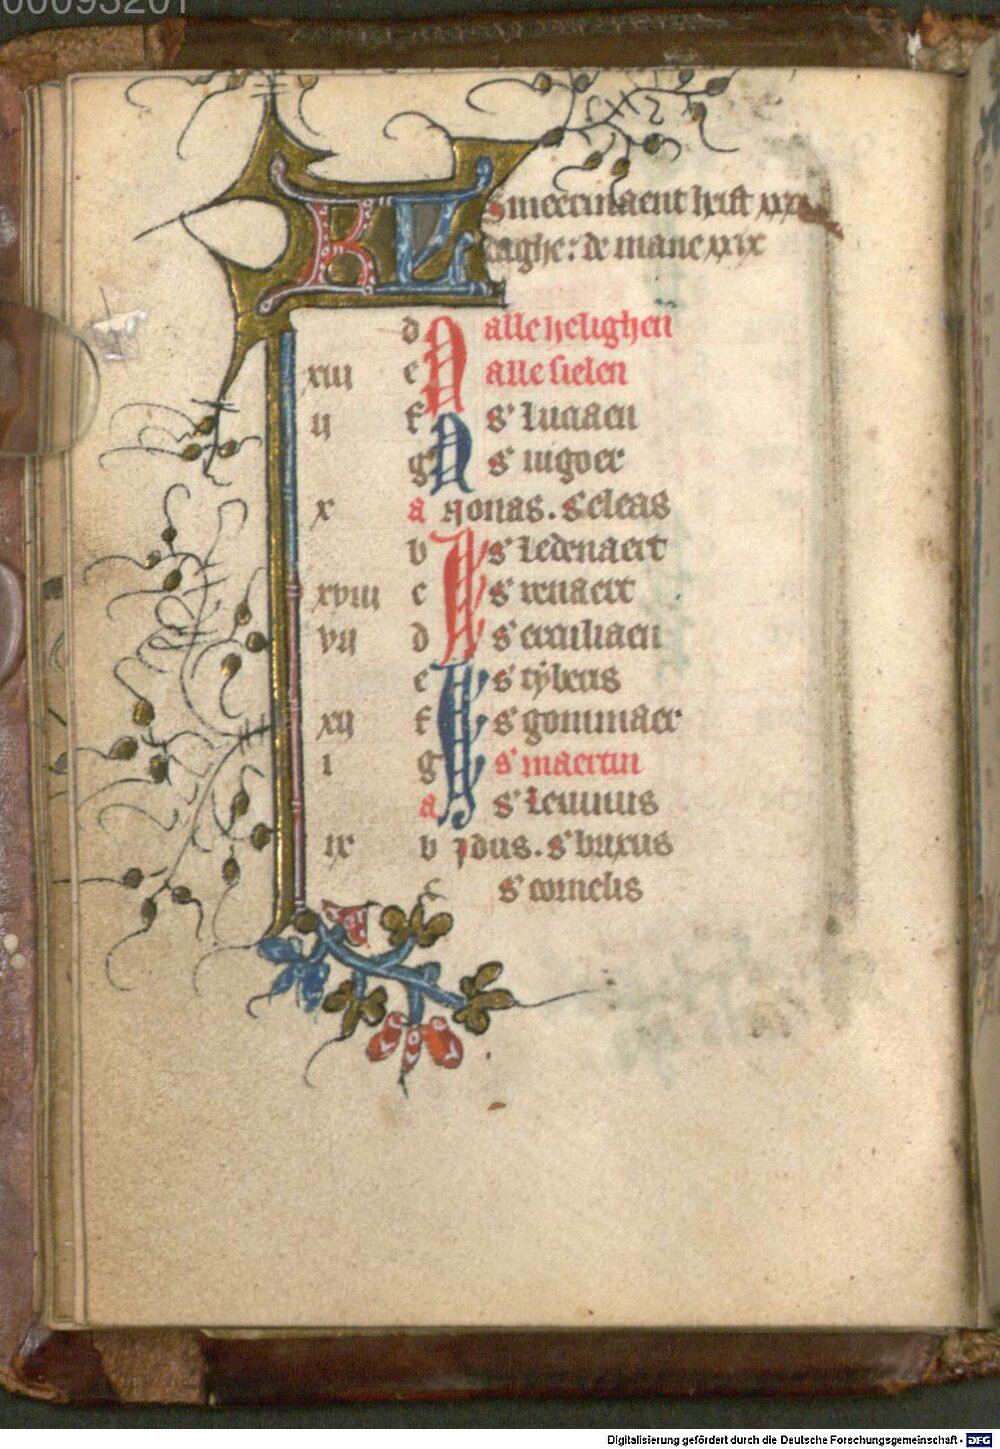 00093201
KL Smeertmaent heift xxx
daghe: de mane xxix
d N alle helighen
xiii e alle sielen
ii f N s' lucaen
g s' uigoer
x a Nonas. s' eleas
b I s' ledenaert
xviii c s' renaert
vii d s' ceciliaen
e I s' tyberis
xii f s' gommaer
i g s' maertin
a s' leuinus
ix b ydus. s' brixus
c s' cornelis
Digitalisierung gefördert durch die Deutsche Forschungsgemeinschaft - DFG